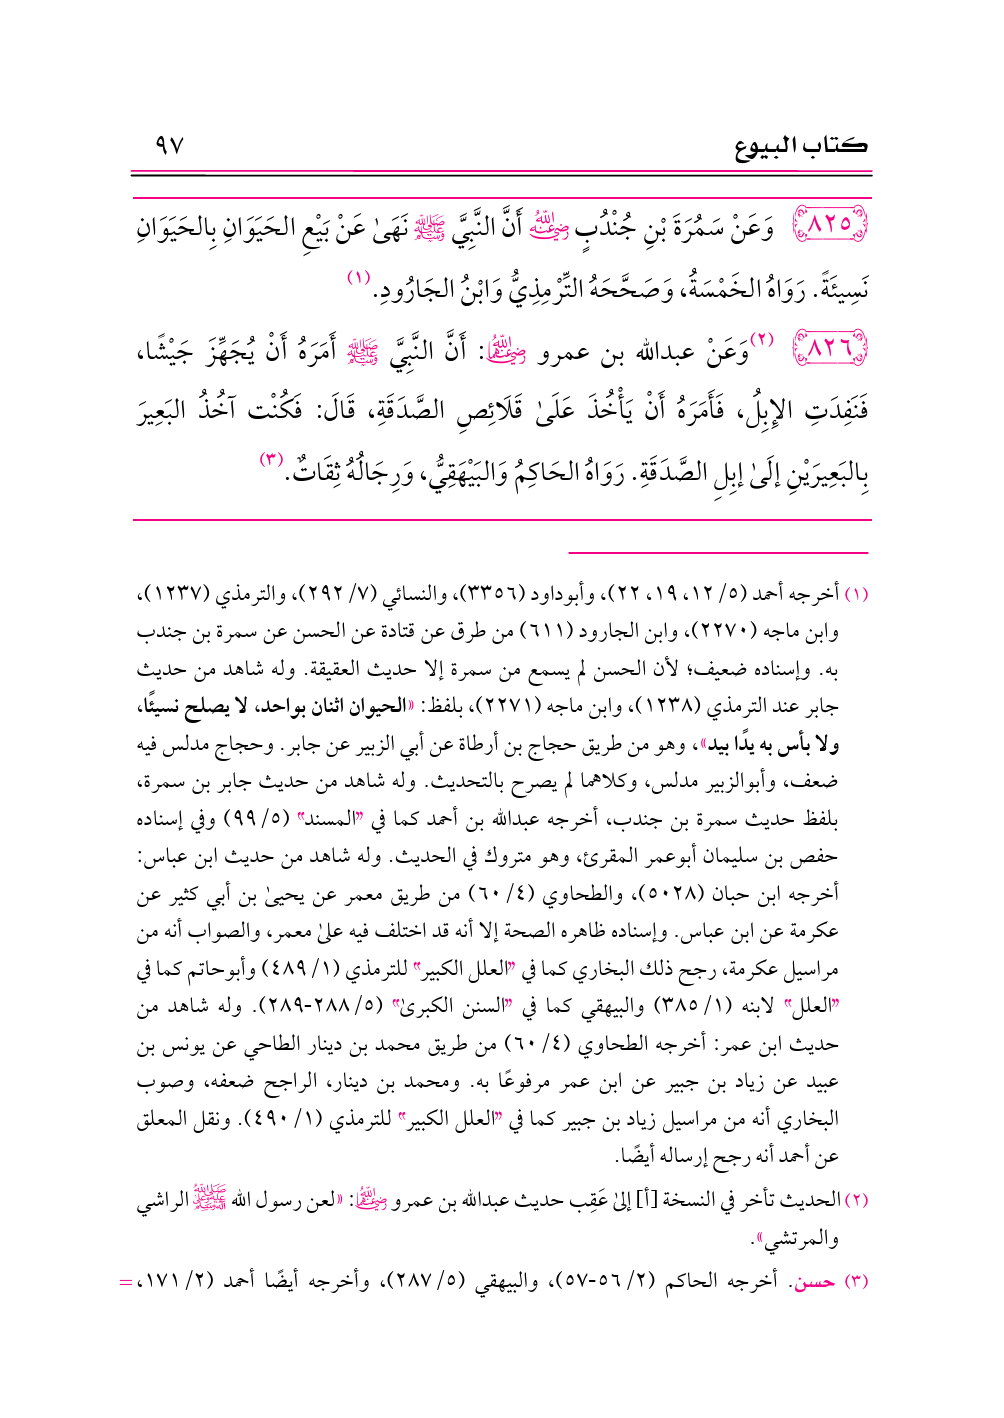 كتاب البيوع ٩٧
٨٢٥ وَعَنْ سَمُرَةَ بْنِ جُنْدُبٍ رضي الله عنه أَنَّ النَّبِيَّ ﷺ نَهَىٰ عَنْ بَيْعِ الحَيَوَانِ بِالحَيَوَانِ
نَسِيئَةً. رَوَاهُ الخَمْسَةُ، وَصَحَّحَهُ التِّرْمِذِيُّ وَابْنُ الجَارُودِ.(١)
٨٢٦ (٢)وَعَنْ عبدالله بن عمرو رضي الله عنهما: أَنَّ النَّبِيَّ ﷺ أَمَرَهُ أَنْ يُجَهِّزَ جَيْشًا،
فَنَفِدَتِ الإِبِلُ، فَأَمَرَهُ أَنْ يَأْخُذَ عَلَىٰ قَلَائِصِ الصَّدَقَةِ، قَالَ: فَكُنْت آخُذُ البَعِيرَ
بِالبَعِيرَيْنِ إلَىٰ إبِلِ الصَّدَقَةِ. رَوَاهُ الحَاكِمُ وَالبَيْهَقِيُّ، وَرِجَالُهُ ثِقَاتٌ.(٣)
(١) أخرجه أحمد (٥/ ١٢، ١٩، ٢٢)، وأبوداود (٣٣٥٦)، والنسائي (٧/ ٢٩٢)، والترمذي (١٢٣٧)،
وابن ماجه (٢٢٧٠)، وابن الجارود (٦١١) من طرق عن قتادة عن الحسن عن سمرة بن جندب
به. وإسناده ضعيف؛ لأن الحسن لم يسمع من سمرة إلا حديث العقيقة. وله شاهد من حديث
جابر عند الترمذي (١٢٣٨)، وابن ماجه (٢٢٧١)، بلفظ: «الحيوان اثنان بواحد، لا يصلح نسيئًا،
ولا بأس به يدًا بيد»، وهو من طريق حجاج بن أرطاة عن أبي الزبير عن جابر. وحجاج مدلس فيه
ضعف، وأبوالزبير مدلس، وكلاهما لم يصرح بالتحديث. وله شاهد من حديث جابر بن سمرة،
بلفظ حديث سمرة بن جندب، أخرجه عبدالله بن أحمد كما في "المسند" (٥/ ٩٩) وفي إسناده
حفص بن سليمان أبوعمر المقرئ، وهو متروك في الحديث. وله شاهد من حديث ابن عباس:
أخرجه ابن حبان (٥٠٢٨)، والطحاوي (٤/ ٦٠) من طريق معمر عن يحيىٰ بن أبي كثير عن
عكرمة عن ابن عباس. وإسناده ظاهره الصحة إلا أنه قد اختلف فيه علىٰ معمر، والصواب أنه من
مراسيل عكرمة، رجح ذلك البخاري كما في "العلل الكبير" للترمذي (١/ ٤٨٩) وأبوحاتم كما في
"العلل" لابنه (١/ ٣٨٥) والبيهقي كما في "السنن الكبرىٰ" (٥/ ٢٨٨-٢٨٩). وله شاهد من
حديث ابن عمر: أخرجه الطحاوي (٤/ ٦٠) من طريق محمد بن دينار الطاحي عن يونس بن
عبيد عن زياد بن جبير عن ابن عمر مرفوعًا به. ومحمد بن دينار، الراجح ضعفه، وصوب
البخاري أنه من مراسيل زياد بن جبير كما في "العلل الكبير" للترمذي (١/ ٤٩٠). ونقل المعلق
عن أحمد أنه رجح إرساله أيضًا.
(٢) الحديث تأخر في النسخة [أ] إلىٰ عَقِب حديث عبدالله بن عمرو رضي الله عنهما: «لعن رسول الله ﷺ الراشي
والمرتشي».
(٣) حسن. أخرجه الحاكم (٢/ ٥٦-٥٧)، والبيهقي (٥/ ٢٨٧)، وأخرجه أيضًا أحمد (٢/ ١٧١، =